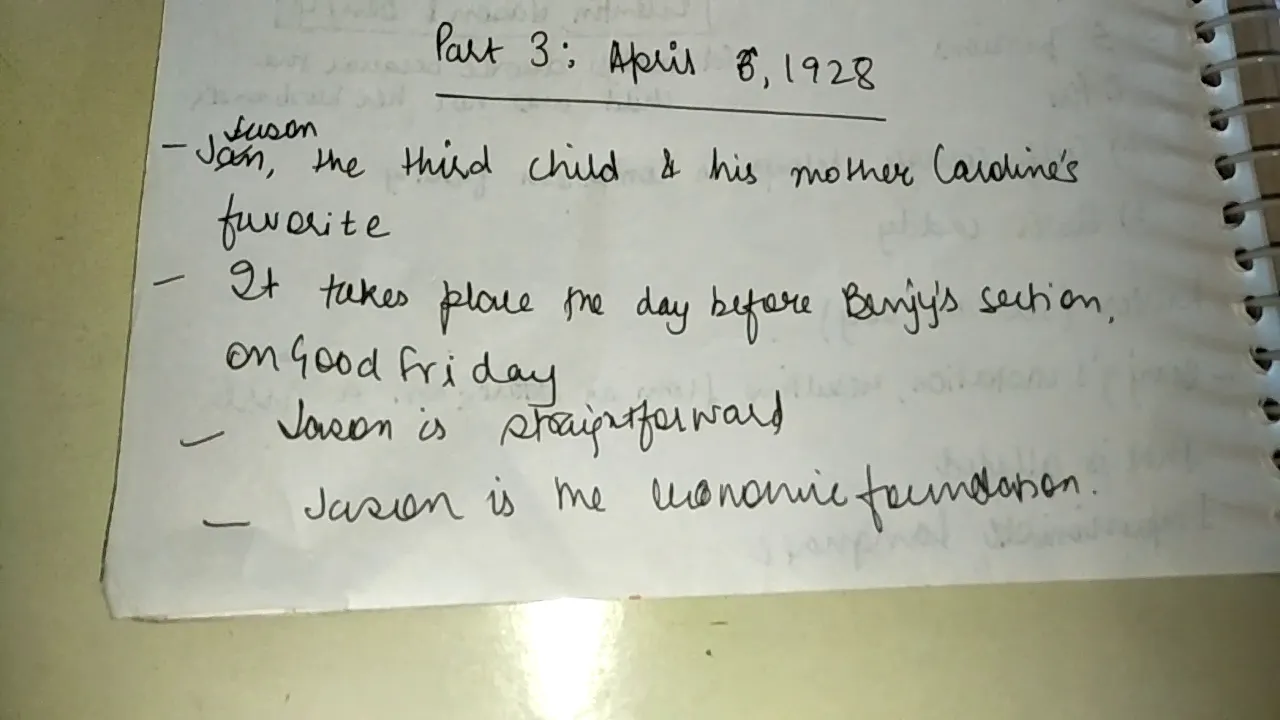 Part 3: April 6, 1928
Jason
- Jan, the third child & his mother Caroline's
favorite
- It takes place the day before Benjy's section,
on Good Friday
- Jason is straightforward
- Jason is the economic foundation.